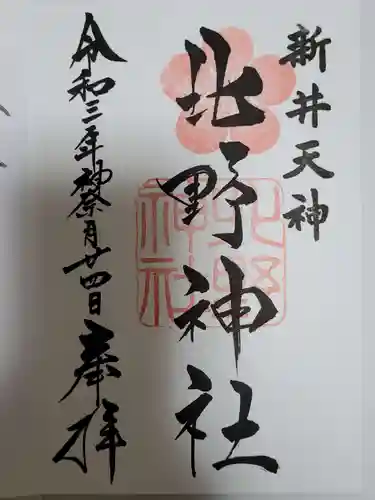 新井天神
北野神社
北野神社
令和三年神祭月廿四日
奉拝